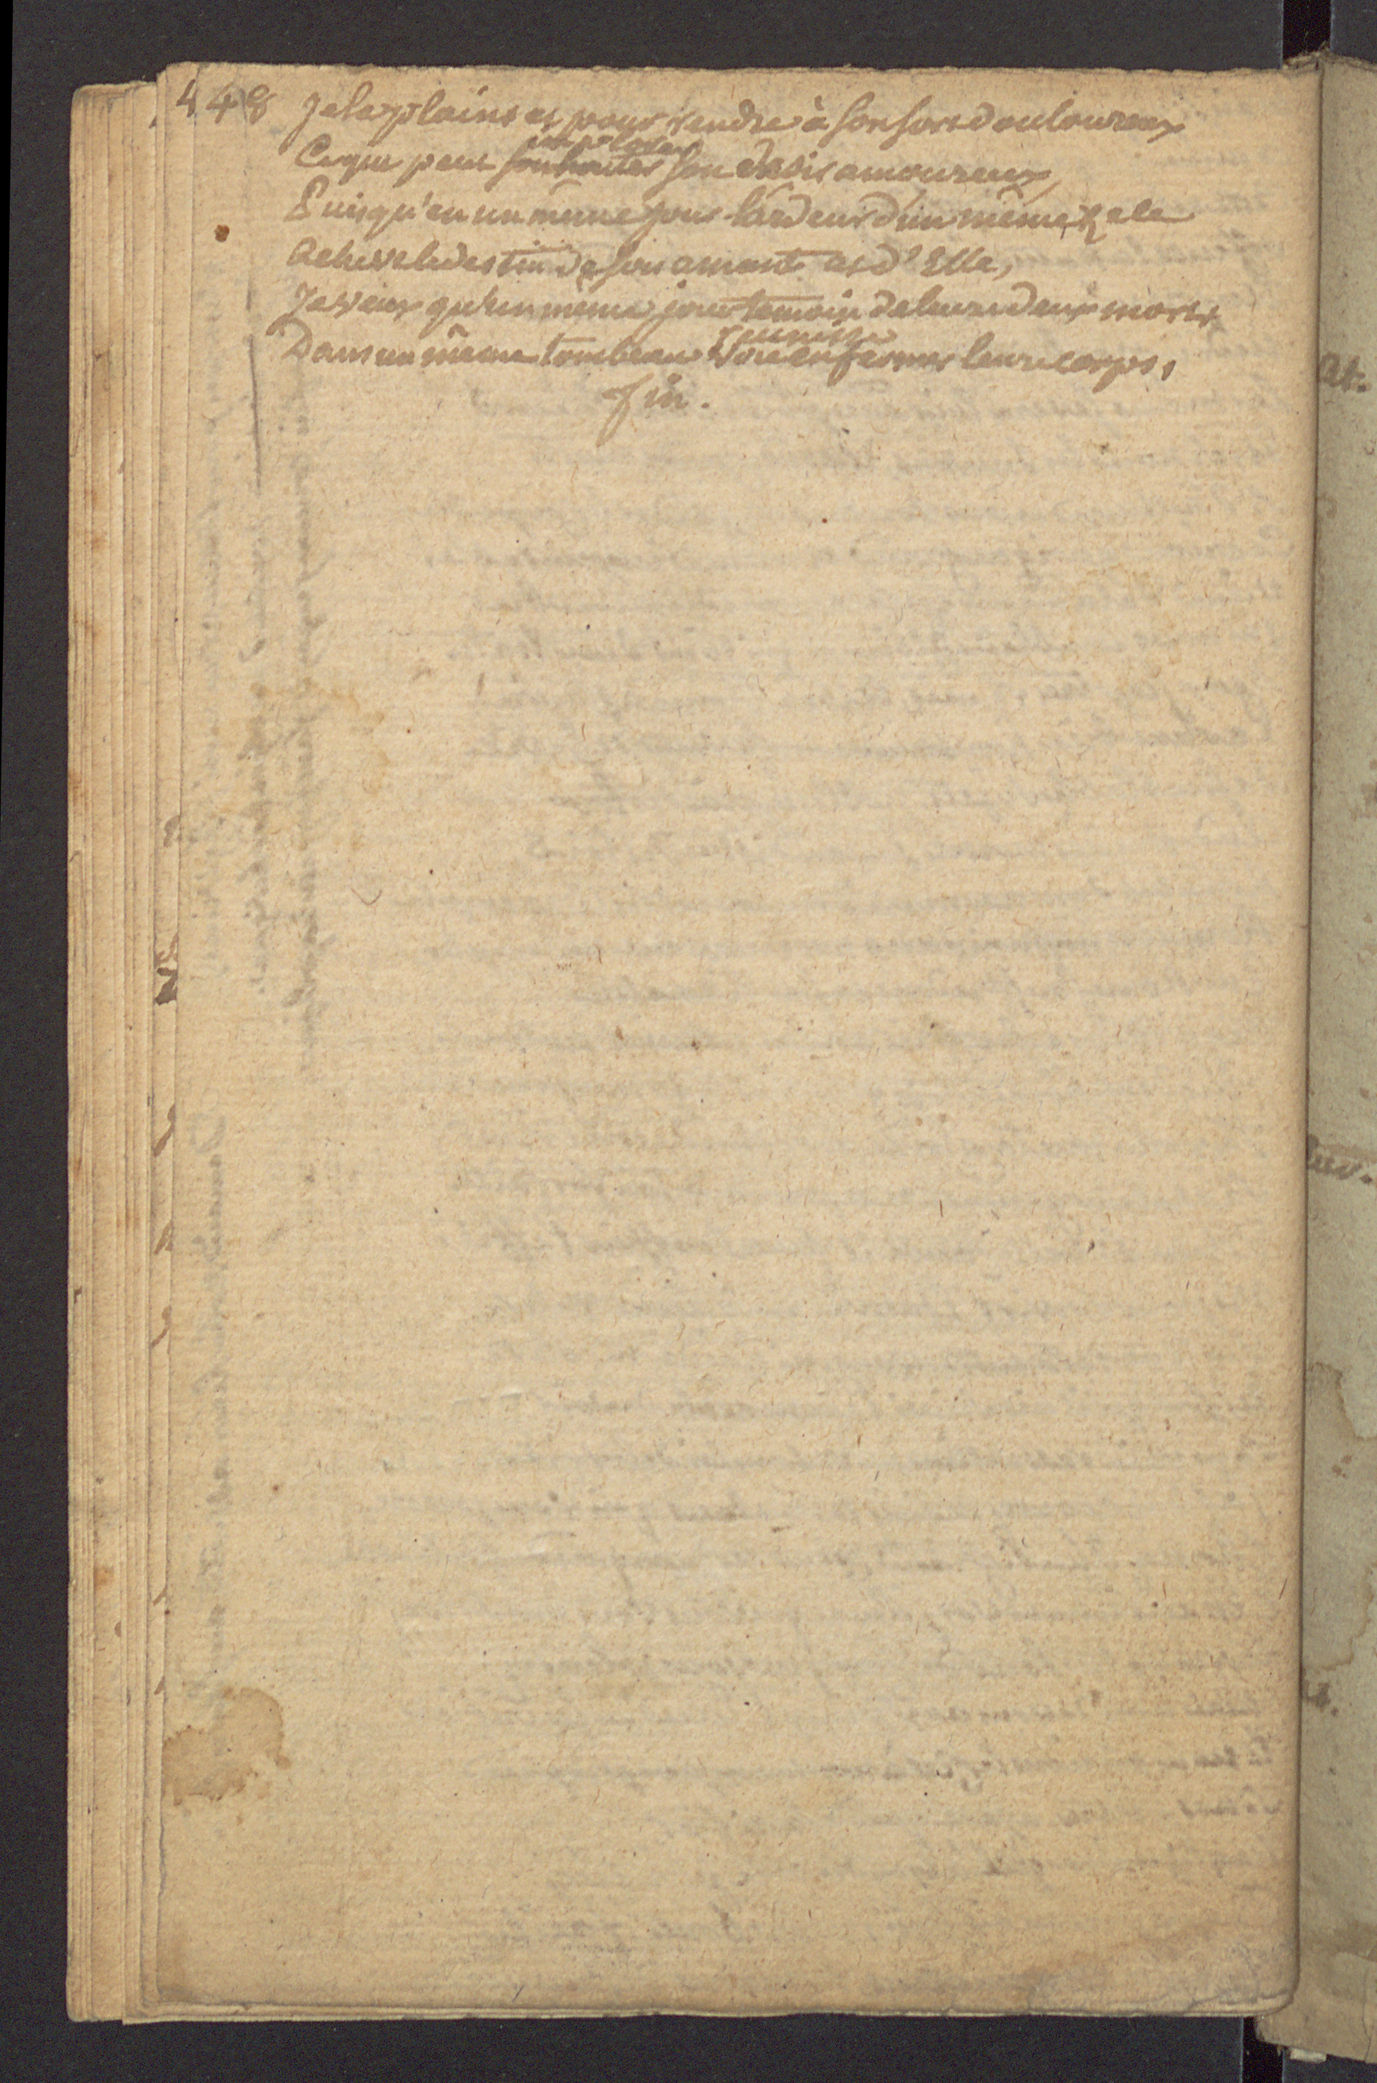 48 Je la plains et pour rendre à son sort douloureux
implorer
Ce que peut souhaiter son desir amoureux,
Puisqu'en un même jour l'ardeur d'un même zele
Acheve le destin de son amant et d'Elle,
Je veux qu'un même jour temoin de leurs deux morts
reunisse
Dans un même tombeau voie enfermer leurs corps,
fin.